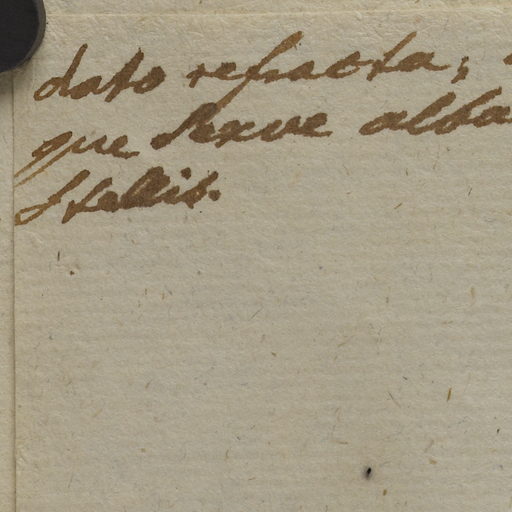 dato refracta;
que Sexve alba
Stellis.